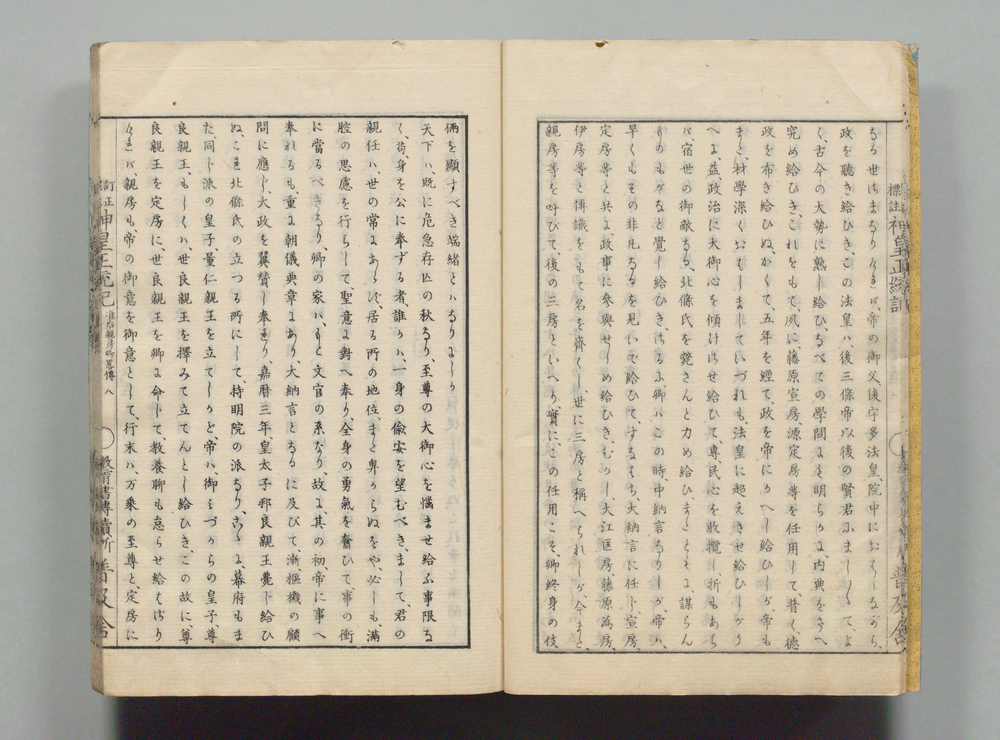 政を聽き給ひき、この法皇ハ、後三條帝以後の賢君におましまして、よ
く、古今の大勢に熟し給ひ、すべての學問にも明らかに、內典をさへ
究め給ひき、これをもて、夙に、藤原宣房、源定房等を任用して、普く、德
政を布き給ひぬ、かくて、五年を經て、政を帝にかへし給ひしが、帝も
また、材學深くおはしましていづれも、法皇に超えさせ給ひしかう
へに、益、政治に大御心を傾けはせ給ひて、專、民心を收攬し、折もあら
バ、宿世の御敵なる、北條氏を斃さんと力め給ひ、まづ、ともに謀らん
ものもがなと覺し給ひき、はるよ卿ハ、この時、中納言なりしが、帝ハ、
早くもその非凡なるを見いで給ひて、すなはち、大納言に任し、宣房、
定房等と共に政事に參與せしめ給ひき、むかし、大江匡房、藤原爲房、
伊房等と博識をもて名を齊くし、世に三房と稱へられしが、今また、
親房等を呼びて、後の三房といへり、實に、この任用こそ、卿終身の伎
倆を顯すべき端緖とハなりにしか
天下ハ既に危急存亡の秋なり、至尊の大御心を惱ませ給ふ事限な
く、苟、身を公に奉ずる者、誰かハ、一身の偸安を望むべき、まして、君の
親任ハ、世の常にあらず、居る所の地位、また卑からぬをや、必しも、滿
腔の思慮を行らして、聖意に對へ奉り、全身の勇氣を奮ひて事の衝
に當るべきなり、卿の家ハ、もと文官の系なり、故に、其の初、帝に事へ
奉れるも、重に朝儀典章にあり、大納言となるに及びて、漸、樞機の顧
問に應し、大政を翼贊し奉れり、嘉曆三年、皇太子邦良親王薨し給ひ
ぬ、これ北條氏の立つる所にして、持明院の派なり、かくて幕府もま
た、同じ派の皇子、量仁親王を立てしかど帝ハ、御みづからの皇子、尊
良親王、もしくハ、世良親王を擇みて立てんとし給ひき、この故に、尊
良親王を定房に、世良親王を卿に命して、敎養聊も怠らせ給はざり
ければ、親房も帝の御意を御意として、行末ハ、万乘の至尊と、定房に
訂正標註神皇正統記 准后親房卿畧傳 八
敎育書専賣所 普及舍